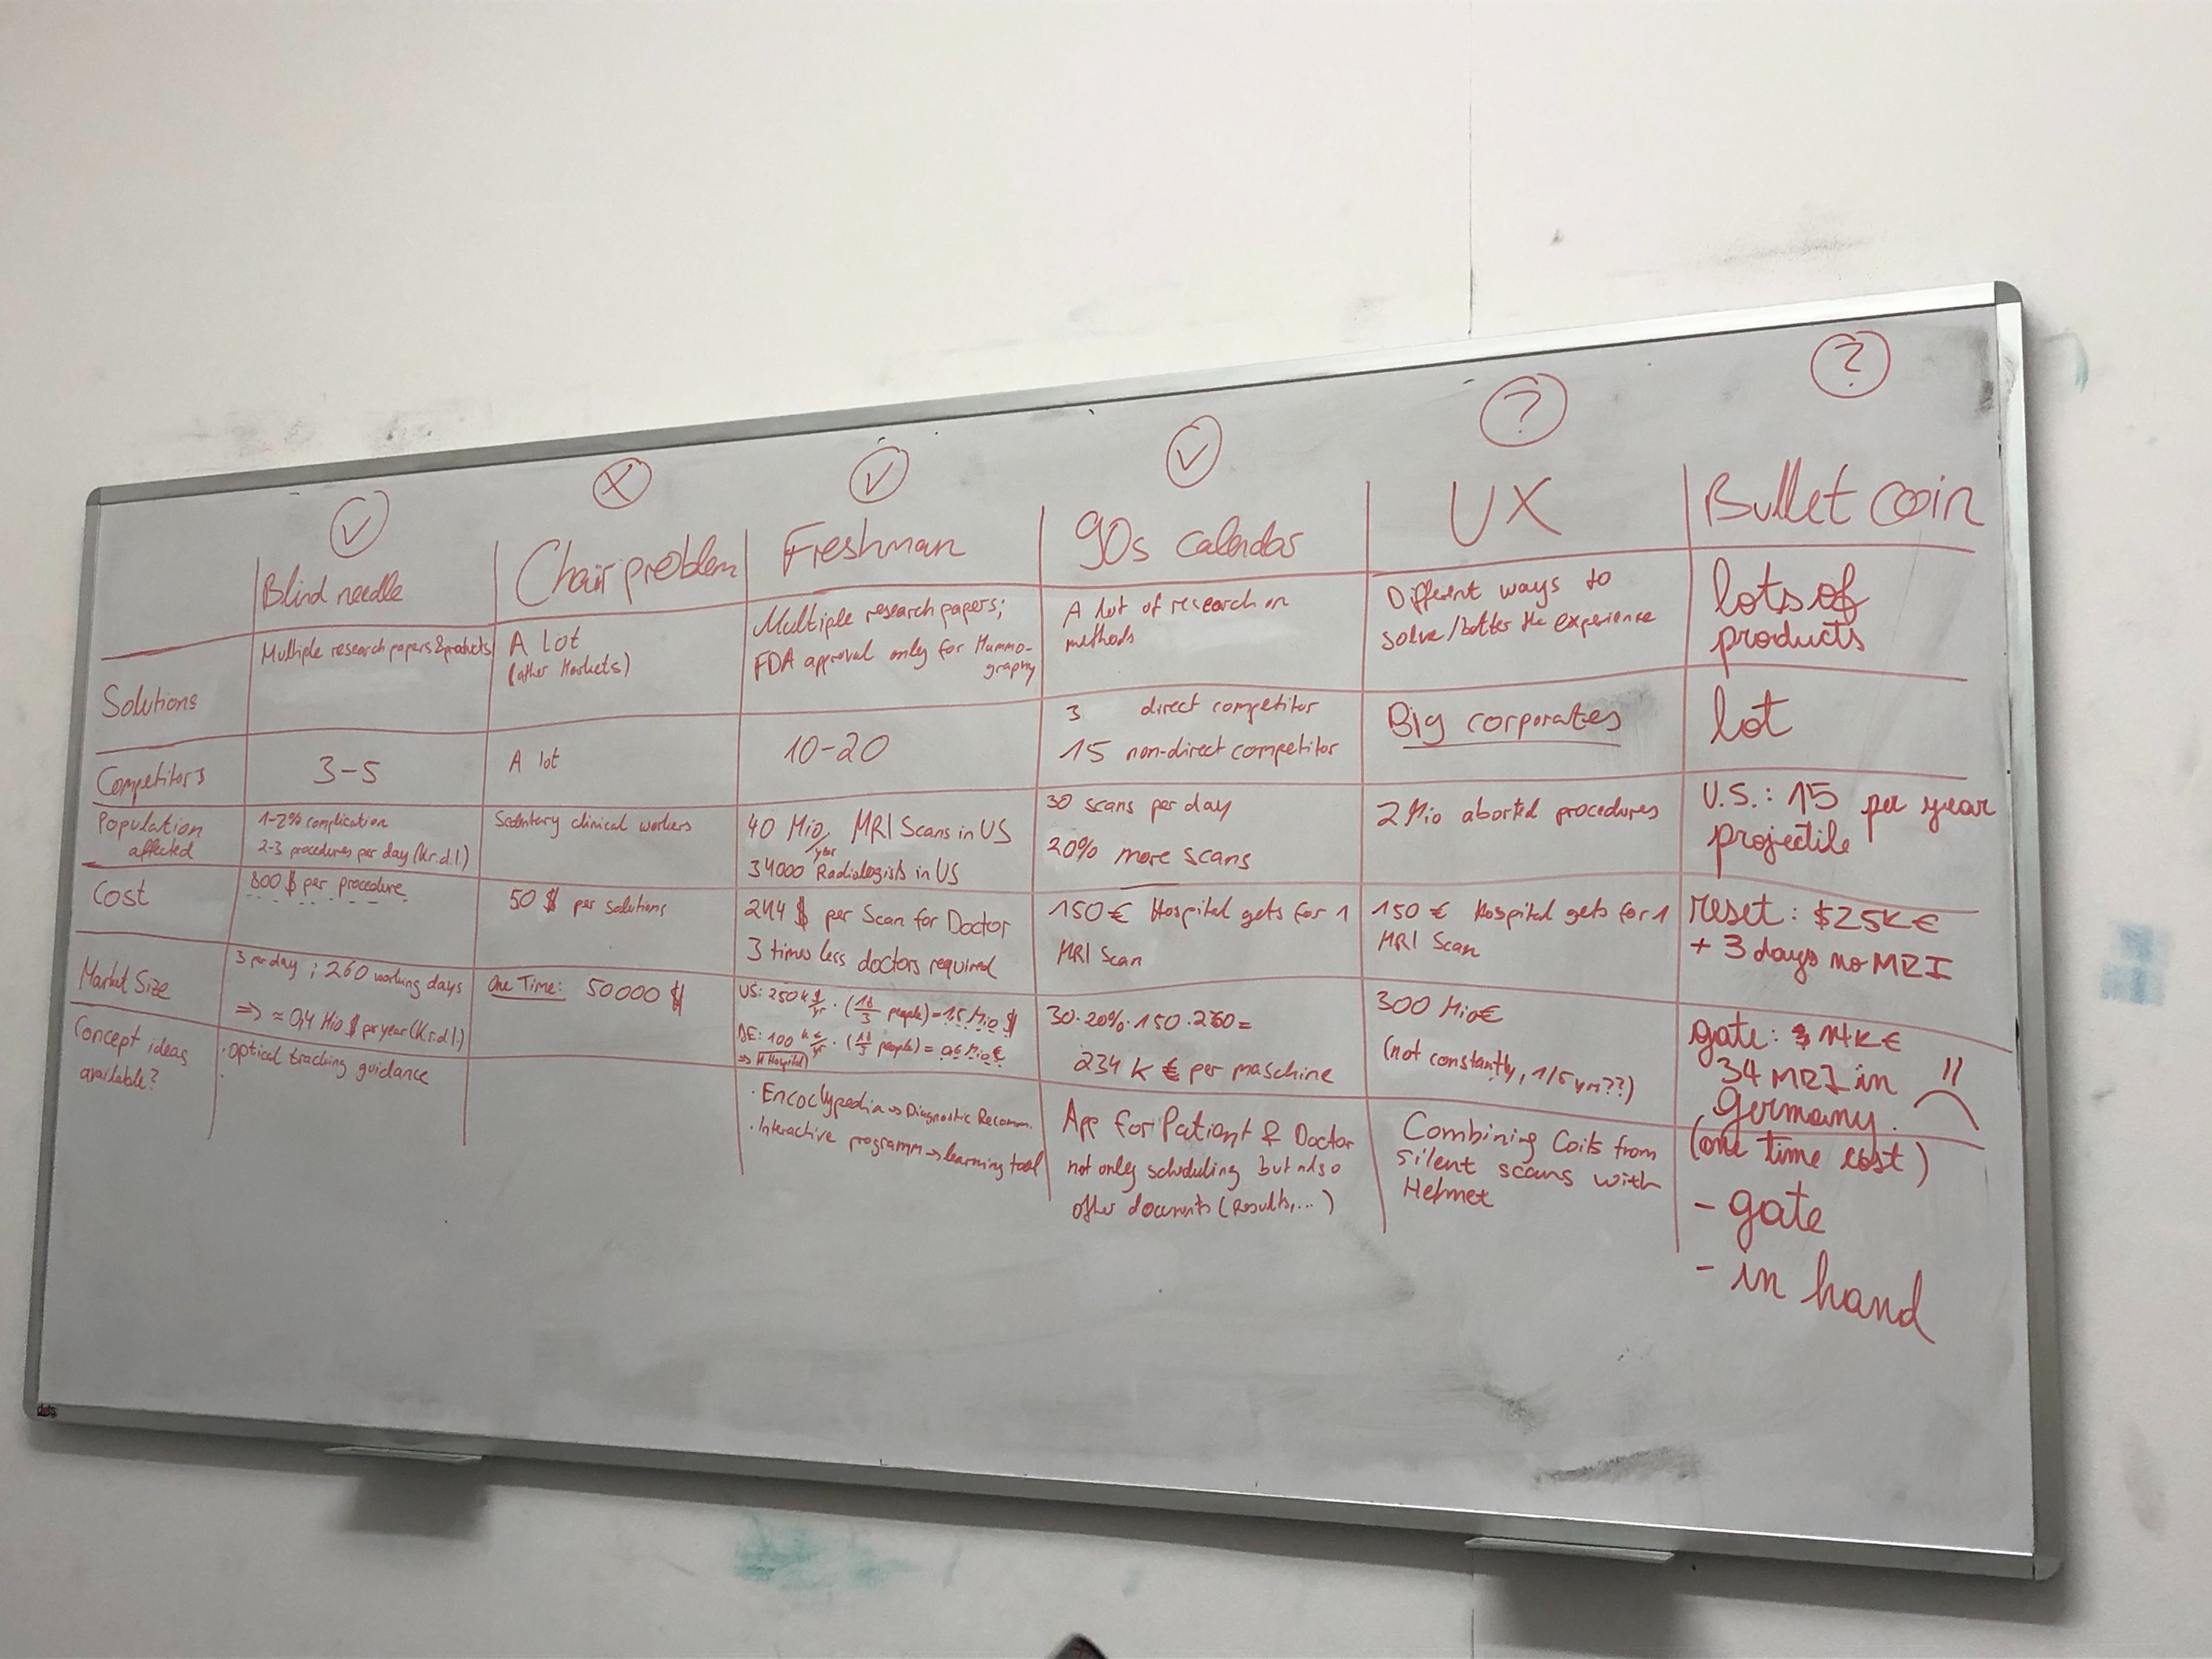 Blind needle
Chair problem
Freshman
90s calendar
UX
Bullet coin
Solutions
Multiple research papers & products
A lot
(other Markets)
Multiple research papers;
FDA approval only for Mammo-
graphy
A lot of research on
methods
Different ways to
solve/better the experience
lots of
products
Competitors
3-5
A lot
10-20
3 direct competitor
15 non-direct competitor
Big corporates
lot
Population
affected
1-2% complication
2-3 procedures per day (Kr.d.I.)
Sedentary clinical workers
40 Mio/year MRI Scans in US
34000 Radiologists in US
30 scans per day
20% more scans
2 Mio aborted procedures
U.S.: 15 per year
projectile
Cost
800 $ per procedure
50 $ per solutions
244 $ per Scan for Doctor
3 times less doctors required
150 € Hospital gets for 1
MRI Scan
150 € Hospital gets for 1
MRI Scan
reset: $25K €
+ 3 days no MRI
Market Size
3 per day ; 260 working days
⇒ ≈ 0,4 Mio $ per year (K.r.d.I.)
One Time: 50000 $
US: 250 k $/yr · (18/3 people) = 1,5 Mio $
DE: 100 k €/yr · (18/3 people) = 0,6 Mio €
Hospital)
30·20%·150·260 =
234 k € per maschine
300 Mio€
(not constantly, 1/5 yrs??)
gate: $ 14K €
34 MRI in
Germany.
(one time cost)
Concept ideas
available?
· optical tracking guidance
·
· Encoclypedia → Diagnostic Recomm.
· Interactive programm → learning tool
App for Patient & Doctor
not only scheduling but also
other documents (Results,...)
Combining Coils from
silent scans with
Helmet
- gate
- in hand